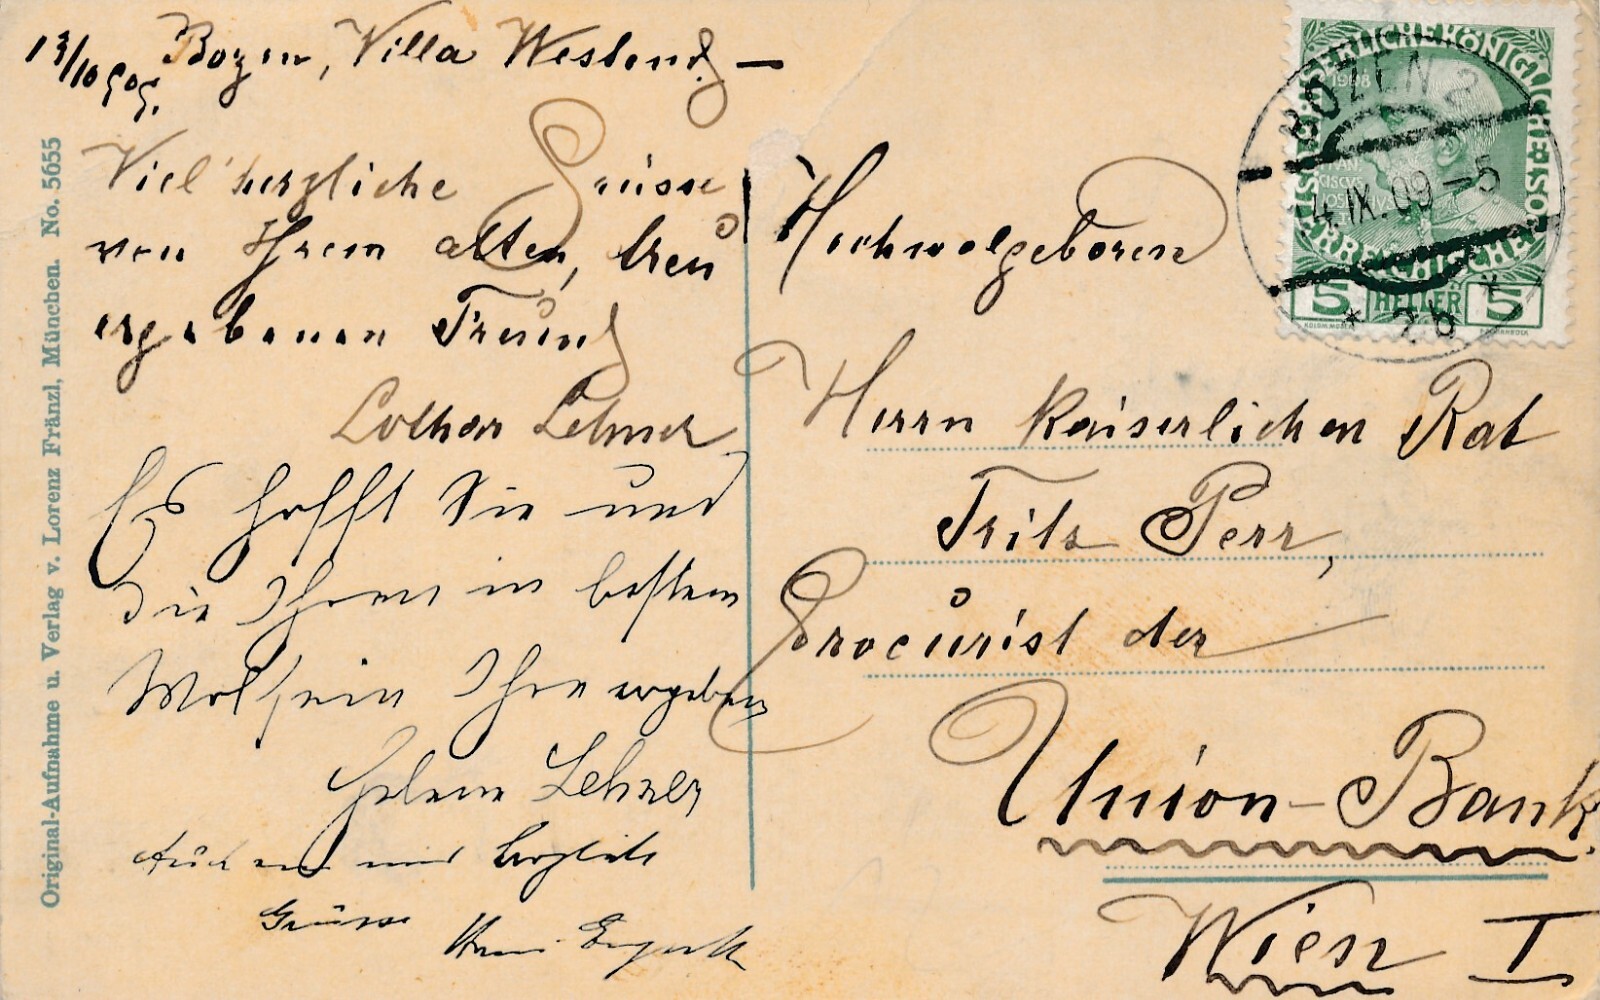 Bozen, Villa Westend. —
Viel herzliche Grüsse
von Ihrem alten, treu
ergebenen Freund
Lothar Lehner
Es hofft Sie und
die Ihren in bestem
Wohlsein Ihre ergebene
Helene Lehner
Auch von mir herzliche
Grüsse
Original-Aufnahme u. Verlag v. Lorenz Fränzl, München. No. 5655
KAISERLICHE KÖNIGLICHE
ÖSTERREICHISCHE
1908
5 HELLER 5
BOZEN 2
4. IX. 09 - 5
* 2b *
Hochwolgeboren
Herrn kaiserlichen Rat
Fritz Perr,
Procurist der
Union-Bank.
Wien I